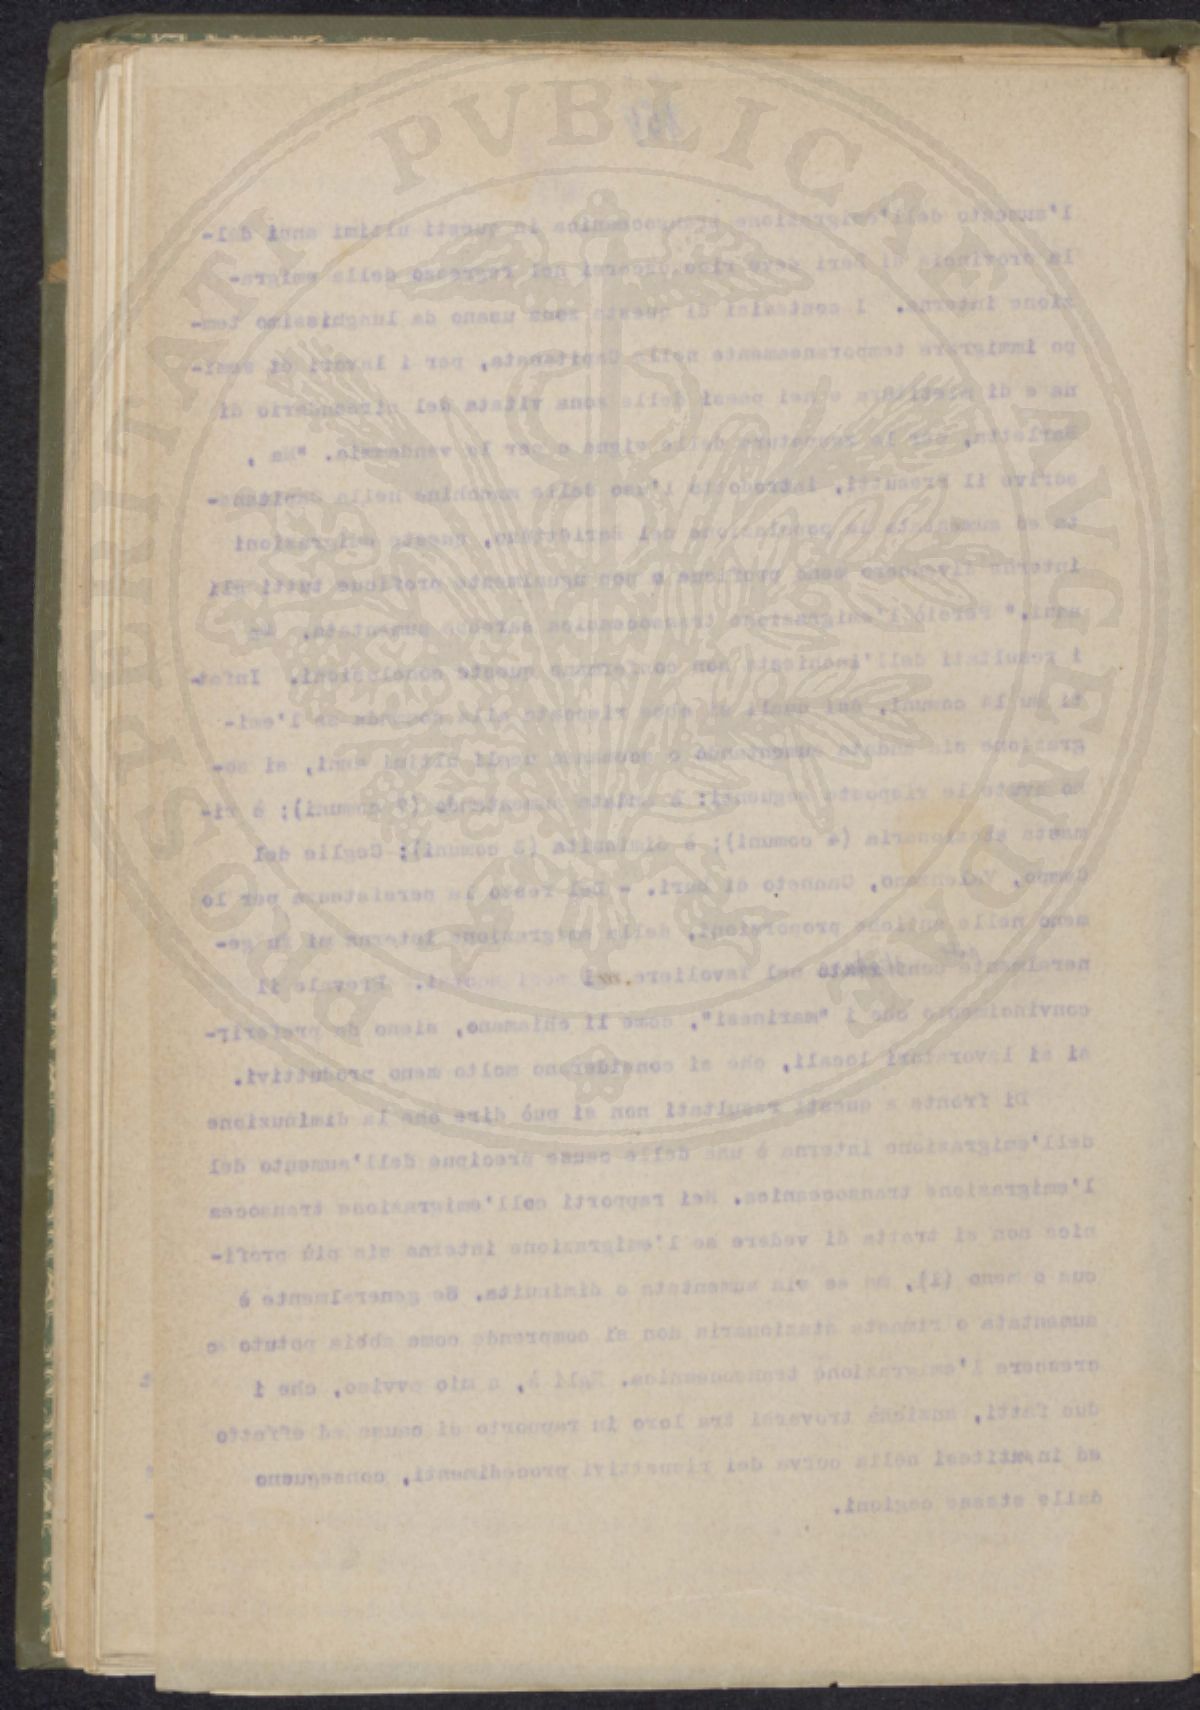 PVBLICAE AVGENDAE PROSPERITATI
l'aumento dell'emigrazione transoceanica in questi ultimi anni dal-
la provincia di Bari deve ricercarsi nel regresso della emigra-
zione interna. I contadini di questa zona usano da lunghissimo tem-
po immigrare temporaneamente nella Capitanata, per i lavori di semi-
na e di mietitura e nei paesi della zona vitata del circondario di
Barletta, per la zappatura delle vigne e per la vendemmia. "Ma ,
scrive il Presutti, introdotto l'uso delle macchine nella Capitana-
ta ed aumentata la popolazione nel Barlettano, queste emigrazioni
interne divennero meno proficue e non ugualmente proficue tutti gli
anni." Perciò l'emigrazione transoceanica sarebbe aumentata. Ma
i resultati dell'inchiesta non confermano queste conclusioni. Infat-
ti su 14 comuni, dai quali si ebbe risposta alla domanda se l'emi-
grazione sia andata aumentando o scemando negli ultimi anni, si so-
no avute le risposte seguenti: è andata aumentando (7 comuni); è ri-
masta stazionaria (4 comuni); è diminuita (3 comuni); Ceglie del
Campo, Valenzano, Canneto di Bari. - Del resto la persistenza per lo
meno nelle antiche proporzioni, della emigrazione interna mi fu ge-
neralmente confermata nel Tavoliere. Prevale il
convincimento che i "marinesi", come li chiamano, sieno da preferir-
si ai lavoratori locali, che si considerano molto meno produttivi.
Di fronte a questi resultati non si può dire che la diminuzione
dell'emigrazione interna è una delle cause precipue dell'aumento del
l'emigrazione transoceanica. Nei rapporti coll'emigrazione transocea
nica non si tratta di vedere se l'emigrazione interna sia più profi-
cua o meno (1), ma se sia aumentata o diminuita. Se generalmente è
aumentata o rimasta stazionaria non si comprende come abbia potuto ac
crescere l'emigrazione transoceanica. Egli è, a mio avviso, che i
due fatti, anziché trovarsi tra loro in rapporto di causa ed effetto
ed in antitesi nella curva dei rispettivi procedimenti, conseguono
dalle stesse cagioni.